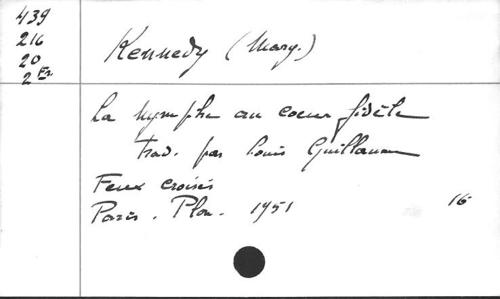 439
216
20
2 Ex
Kennedy (Mary.)
La nymphe au coeur fidèle
trad. par Louis Guillaume
Feux croisés
Paris. Plon. 1951 16